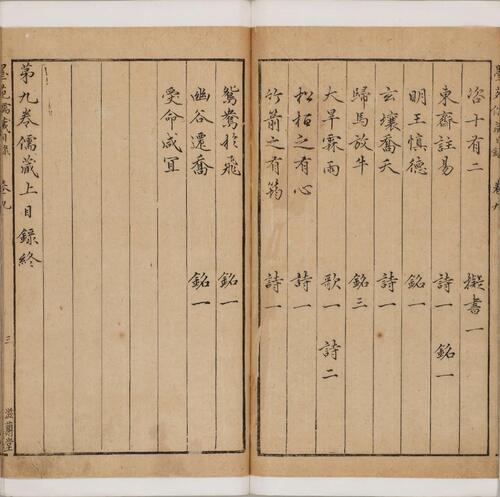 咨十有二 擬書一
東齋註易 詩一 銘一
明王慎德 銘一
玄壤喬天 詩一
歸馬放牛 銘三
大旱霖雨 歌一 詩二
松柏之有心 詩一
竹箭之有筠 詩一
鴛鴦於飛 銘一
幽谷遷喬 銘一
受命咸宜
第九卷儒藏上目錄終
墨苑儒藏目錄 卷九 三 滋蘭堂